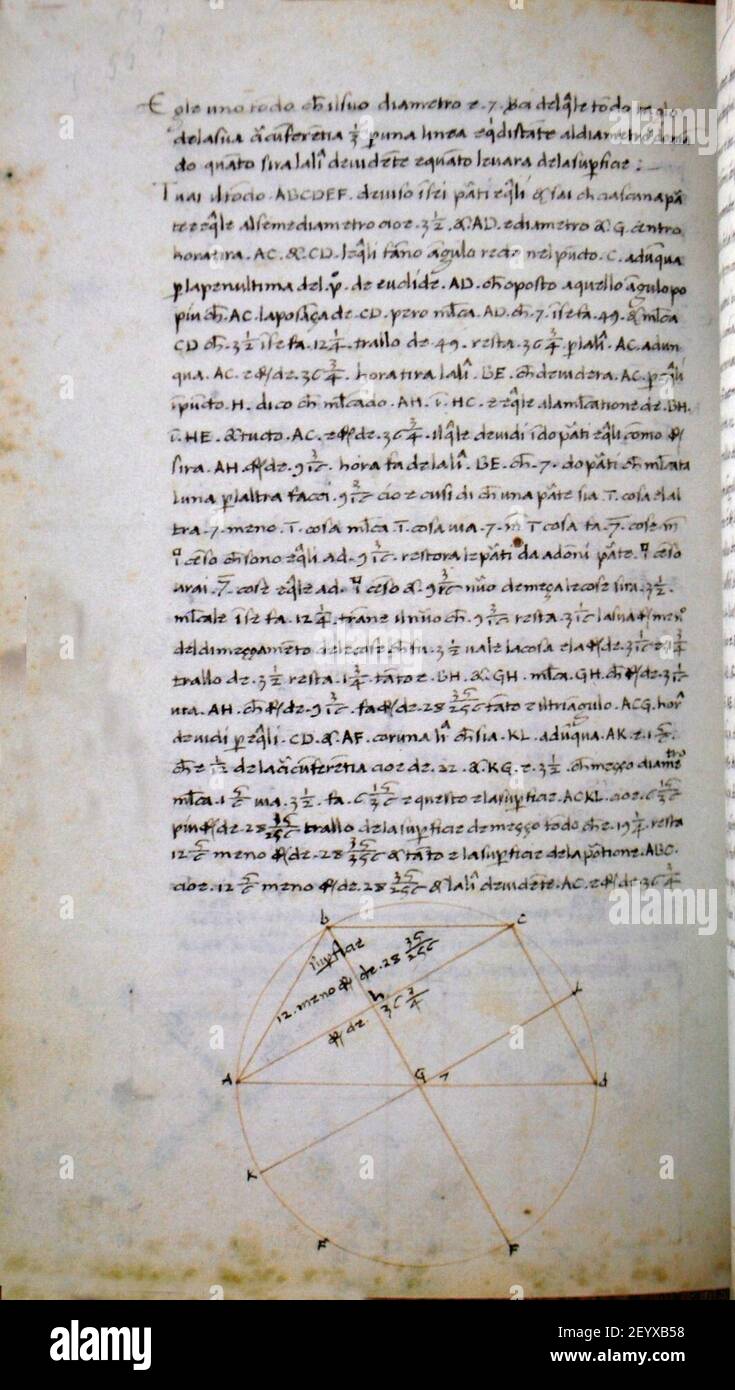 E gle uno todo ch il suo diametro e .7. 
dela sua circuferetia 1/3 p una linea eqdistate al diametro
do quato sira la li deuidete e quato leuara dela supficie :
Tu ai il todo .ABCDEF. deuiso i sei pati eqli & sai ch ciascuna pa
te e eqle al semediametro cioe .3 1/2. & .AD. e diametro & .G. centro
hora tira .AC. & .CD. leqli fano angulo recto nel puto .C. aduqua
p la penultima del .p°. de euclide .AD. ch oposto a quello angulo po
piu ch .AC. la posaça de .CD. pero mlca .AD. ch .7. i se fa .49. & mlca
CD ch .3 1/2 i se fa .12 1/4. trallo de .49. resta .36 3/4 p la li .AC. adun
qua .AC. e R de .36 3/4. hora tira la li .BE. ch deuidera .AC. p eqli
i puto .H. dico ch mlcado .AH. i .HC. e eqle a la mlcatione de .BH.
i .HE. & tucto .AC. e R de .36 3/4. il qle deuidi i do pati eqli como R
sira .AH. R de .9 3/16. hora fa de la li .BE. ch .7. do pati ch mlcata
l una p l altra faccí .9 3/16 cioe cusi di ch una pate sia .1. cosa e l al
tra .7. meno .1. cosa mlca .1. cosa uia .7. m 1 cosa fa .7. cose m
1 ceso ch sono eqli ad .9 3/16. restora le pati da adoni pate .1 ceso
arai .7. cose eqle ad .1 ceso & .9 3/16 nuo demeça le cose sira .3 1/2.
mlcale i se fa .12 1/4. trane il nuo ch .9 3/16 resta .3 1/16 la sua R meno
del dimeççameto dele cose ch fu .3 1/2 uale la cosa e la R de .3 1/16 e 1 3/4
trallo de .3 1/2 resta .1 3/4. tato e .BH. & .GH. mlca .GH. ch R de .3 1/16
uia .AH. ch R de .9 3/16. fa R de .28 35/256 tato e il triagulo .ACG. hora
deuidi p eqli .CD. & .AF. co una li ch sia .KL. aduqua .AK. e .1 5/6.
ch e 1/12 de la circuferetia cioe de .22. & .KG. e .3 1/2. ch meçço diametro
mlca .1 5/6 uia .3 1/2. fa .6 15/36 e questo e la supficie .ACKL. cioe .6 15/36
piu R de .28 35/256 trallo dela supficie de meçço todo ch e .19 1/4. resta
12 5/6 meno R de .28 35/256 & tato e la supficie dela potione .ABC.
cioe .12 5/6 meno R de .28 35/256 & la li deuidete .AC. e R de 36 3/4
b
C
supficie
12. meno R de .28 35/256
h
R de. 36 3/4
L
A
G
7
d
K
F
F
alamy
Image ID: 2EYXB58
www.alamy.com